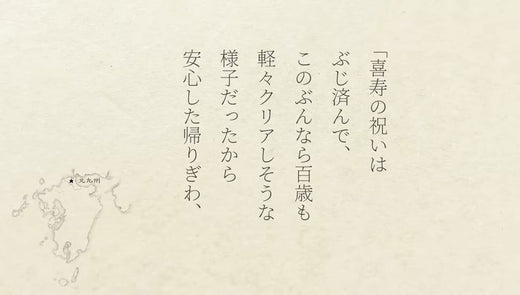 「喜寿の祝いは
ぶじ済んで、
このぶんなら百歳も
軽々クリアしそうな
様子だったから
安心した帰りぎわ、
★北九州